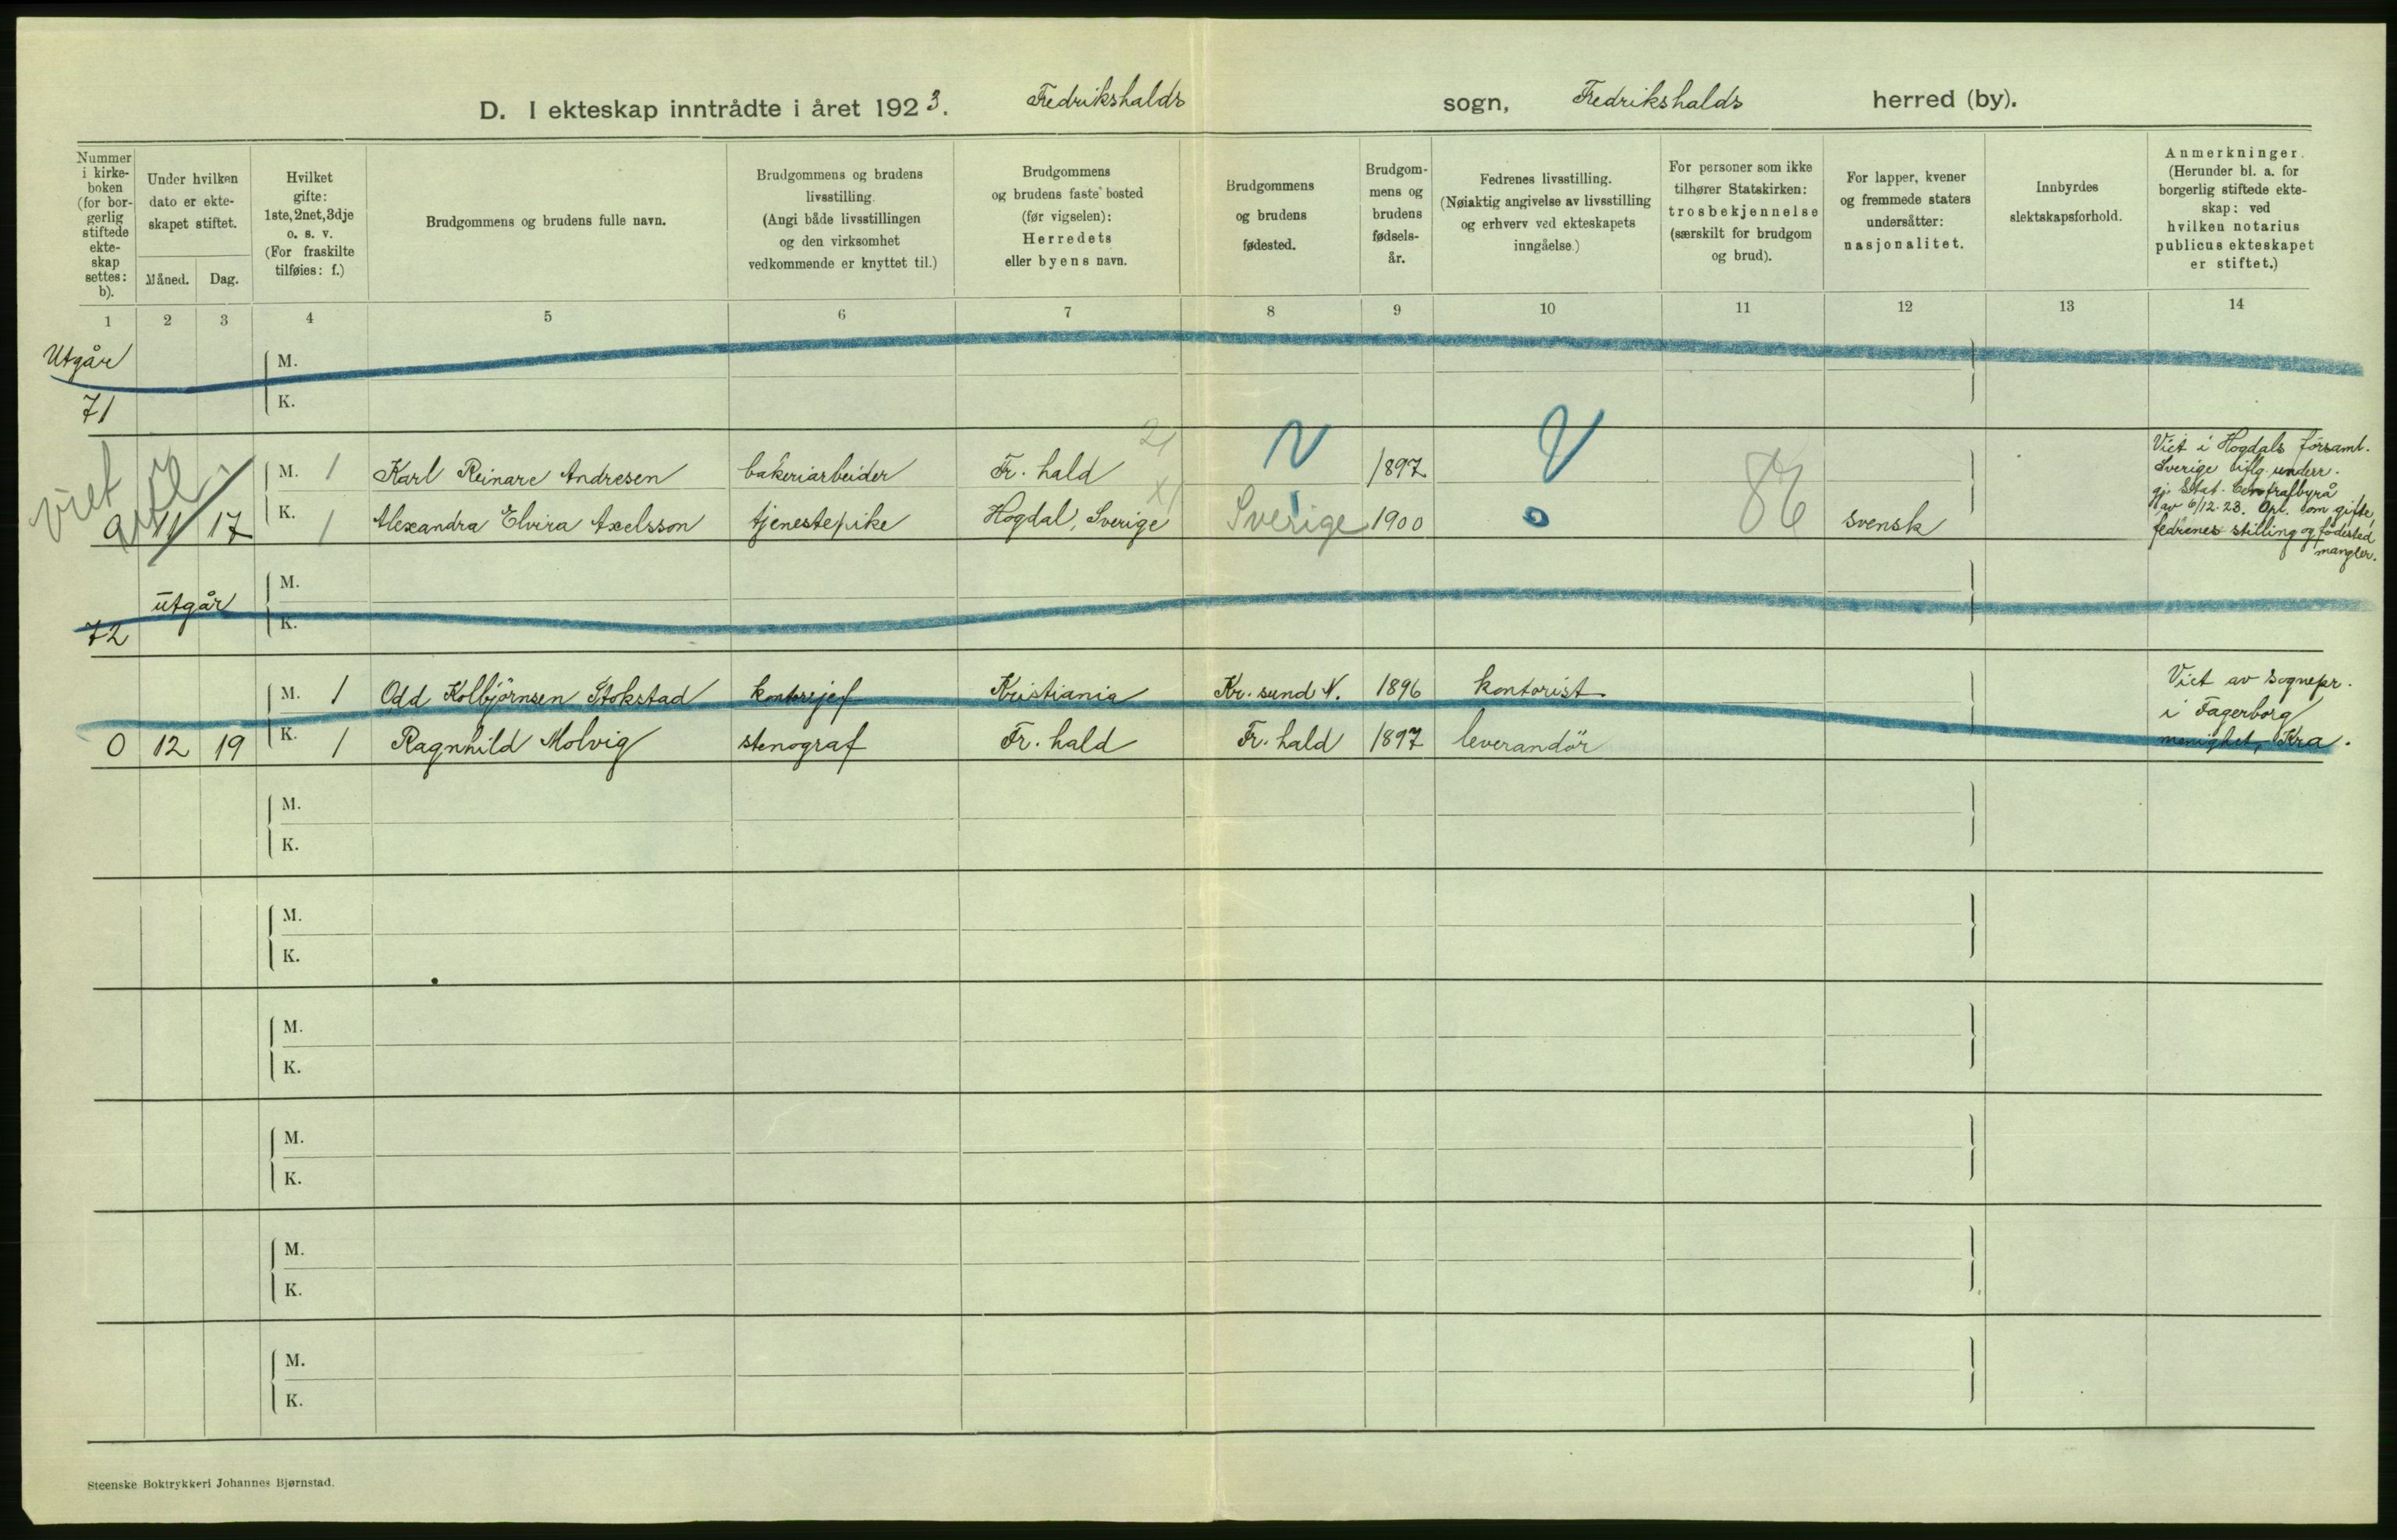 D. I ekteskap inntrådte i året 1923. Fredrikshalds sogn, Fredrikshalds herred (by).
Nummer
i kirke-
boken
(for bor-
gerlig
stiftede
ekte-
skap
settes:
b).
Under hvilken
dato er ekte-
skapet stiftet.
Måned. Dag.
Hvilket
gifte:
1ste, 2net, 3dje
o. s. v.
(For fraskilte
tilføies: f.)
Brudgommens og brudens fulle navn.
Brudgommens og brudens
livsstilling.
(Angi både livsstillingen
og den virksomhet
vedkommende er knyttet til.)
Brudgommens
og brudens faste bosted
(før vigselen):
Herredets
eller byens navn.
Brudgommens
og brudens
fødested.
Brudgom-
mens og
brudens
fødsels-
år.
Fedrenes livsstilling.
(Nøiaktig angivelse av livsstilling
og erhverv ved ekteskapets
inngåelse.)
For personer som ikke
tilhører Statskirken:
trosbekjennelse
(særskilt for brudgom
og brud).
For lapper, kvener
og fremmede staters
undersåtter:
nasjonalitet.
Innbyrdes
slektskapsforhold.
Anmerkninger.
(Herunder bl. a. for
borgerlig stiftede ekte-
skap: ved
hvilken notarius
publicus ekteskapet
er stiftet.)
1 2 3 4 5 6 7 8 9 10 11 12 13 14
Utgår
M.
K.
71
viet
M. 1 Karl Reinare Andresen bakeriarbeider Fr. hald 21 1897
K. 1 Alexandra Elvira Axelsson tjenestepike Hogdal, Sverige Sverige 1900 0 svensk
11 17
Viet i Hogdals församl.
Sverige iflg. underr.
gj. Stat. Centralbyrå
av 6/12-23. Opl. om gifte,
fedrenes stilling og fødested
mangler.
utgår
M.
K.
72
M. 1 Odd Kolbjörnsen Stokstad kontorsjef Kristiania Kr. sund N. 1896 kontorist
0 12 19 K. 1 Ragnhild Molvig stenograf Fr. hald Fr. hald 1897 leverandör
Viet av sognepr.
i Fagerborg
menighet, Kra.
M.
K.
M.
K.
M.
K.
M.
K.
M.
K.
M.
K.
Steenske Boktrykkeri Johannes Bjørnstad.